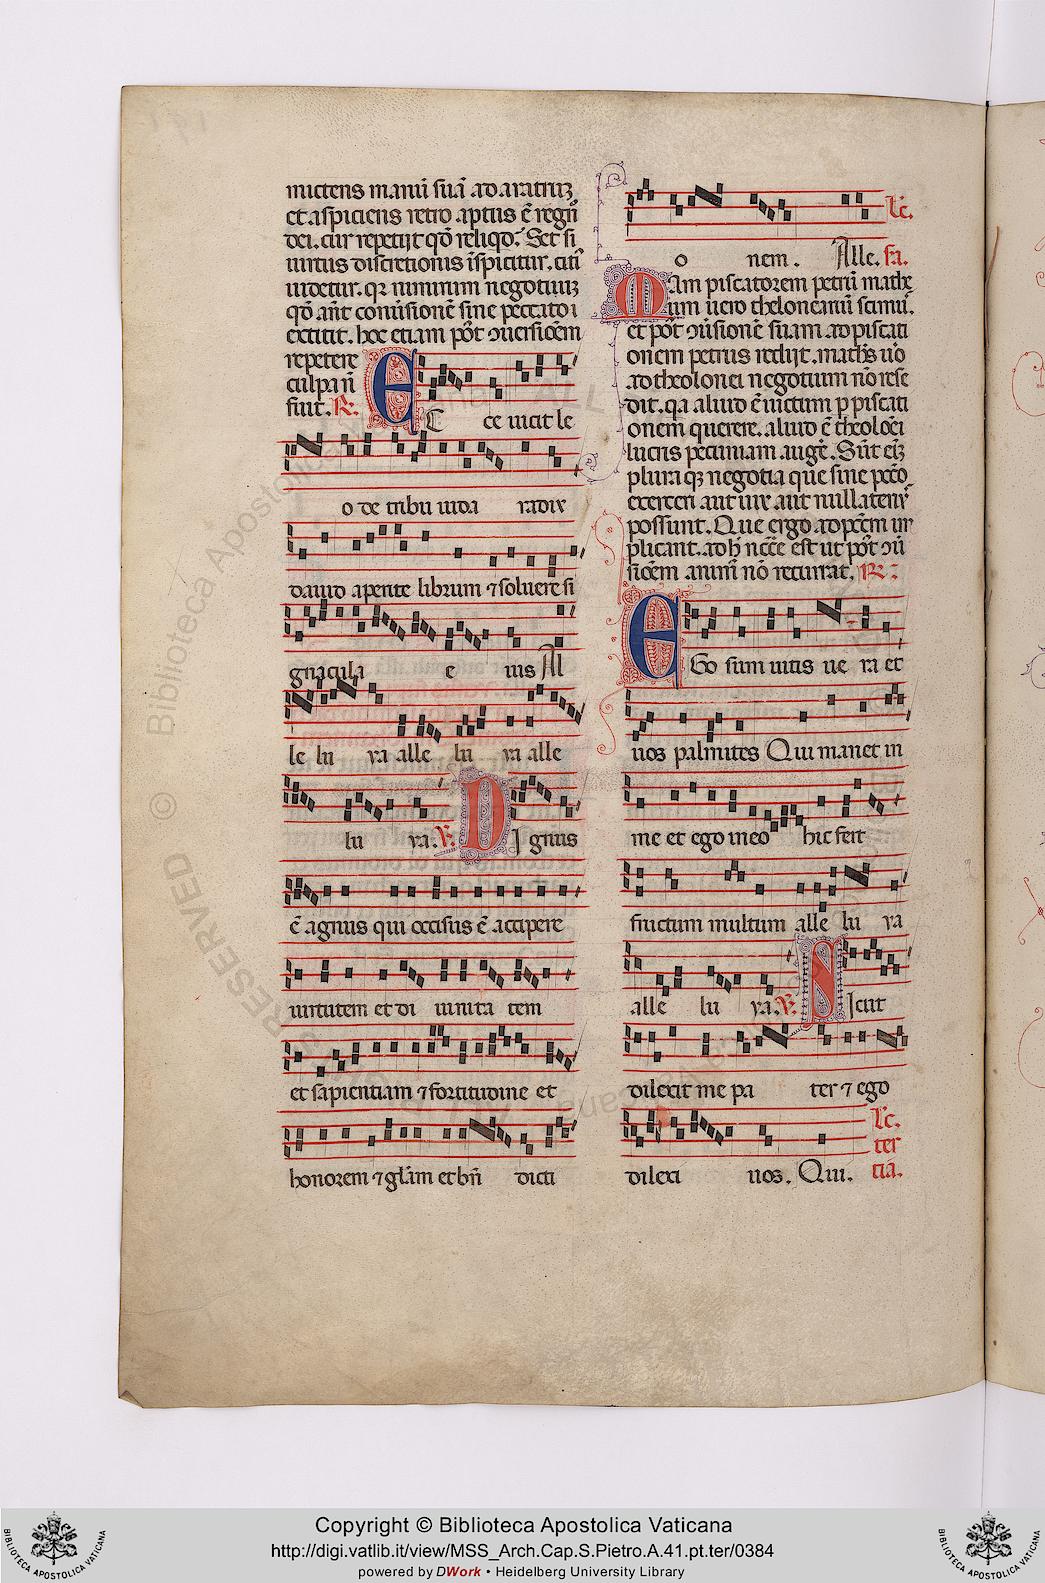 mictens manū suā ad aratruꝫ
et aspiciens retro aptus ē regn̄
dei. cur repetijt qđ reliqđ. Set si
uirtus discretionis īspicitur. citi᷑
uidetur. qꝛ nimirum negotiuꝫ
qđ an̄t conūsionē sine peccato
extitit. hoc etiam pōt ꝯuersiōem
repetere
culpa n̄
fuit. R.
E C ce uicit le
o de tribu iuda radix
dauid aperire librum ⁊ soluere si
gnacula e ius Al
le lu ya alle lu ya alle
lu ya. V. D I gnus
ē agnus qui occisus ē accipere
uirtutem et di uinita tem
et sapientiam ⁊ fortitudine et
honorem ⁊ glām et bn̄ dicti
o nem. Alle. fa. Lc̄.
N Am piscatorem petrū mathe
um uero theloneariū scimu᷒.
et pōt ꝯūsionē suam ad piscati
onem petrus redijt. mathe᷒ uo
ad theolonei negotium nō rese
dit. qa aliud ē uictum p piscati
onem querere. aliud ē theolōei
lucris pecuniam augē. Sūt eīꝫ
pluraqꝫ negotia que sine pccō
exerceri aut uix aut nullaten᷒
possunt. Que ergo ad pccm im
plicant. ad h̄ nc̄ce est ut pōt ꝯū
siōem animū nō recurrat. R.
E Go sum uitis ue ra et
uos palmites Qui manet in
me et ego in eo hic fert
fructum multum alle lu ya
alle lu ya. V. S Icut
dilexit me pa ter ⁊ ego
dilexi uos. Qui. Lc̄.
ter
cia.
© Biblioteca Apostolica Vaticana ALL RIGHTS RESERVED
Copyright © Biblioteca Apostolica Vaticana
http://digi.vatlib.it/view/MSS_Arch.Cap.S.Pietro.A.41.pt.ter/0384
powered by DWork • Heidelberg University Library
BIBLIOTECA APOSTOLICA VATICANA
BIBLIOTECA APOSTOLICA VATICANA